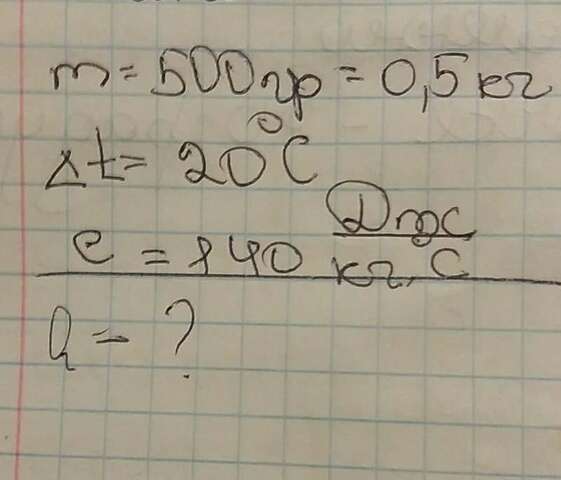 m = 500 гр = 0,5 кг
Δt = 20°C
c = 840 Дж/кг·C
Q = ?